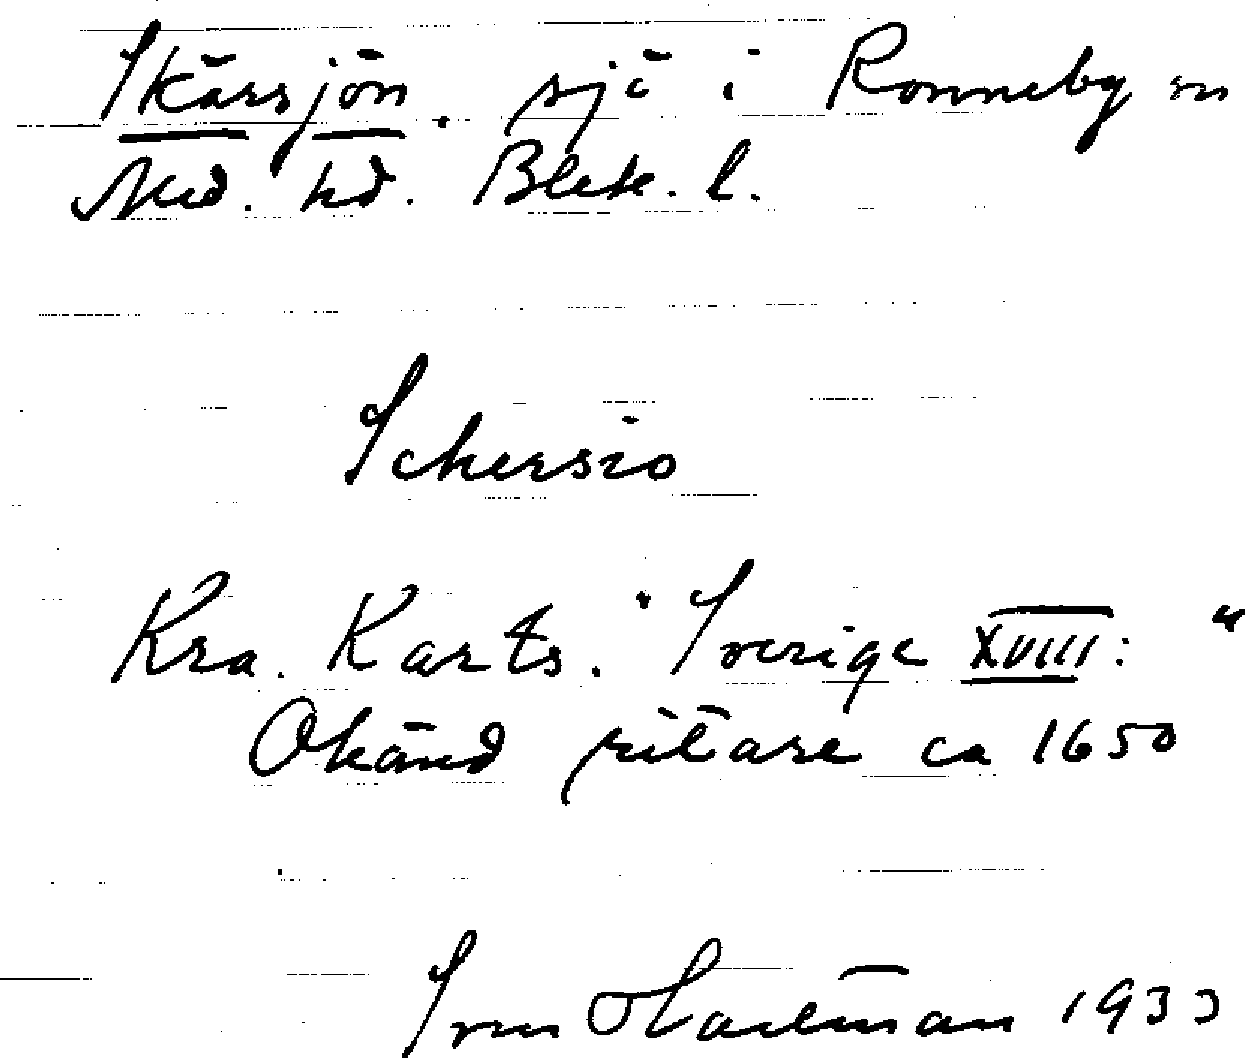 Skärsjön. sjö i Ronneby sn
Med. hd. Blek. l.
Schersio
Kra. Karts. "Sverige XVIII: "
Okänd ritare ca 1650
Sven Hartman 1933